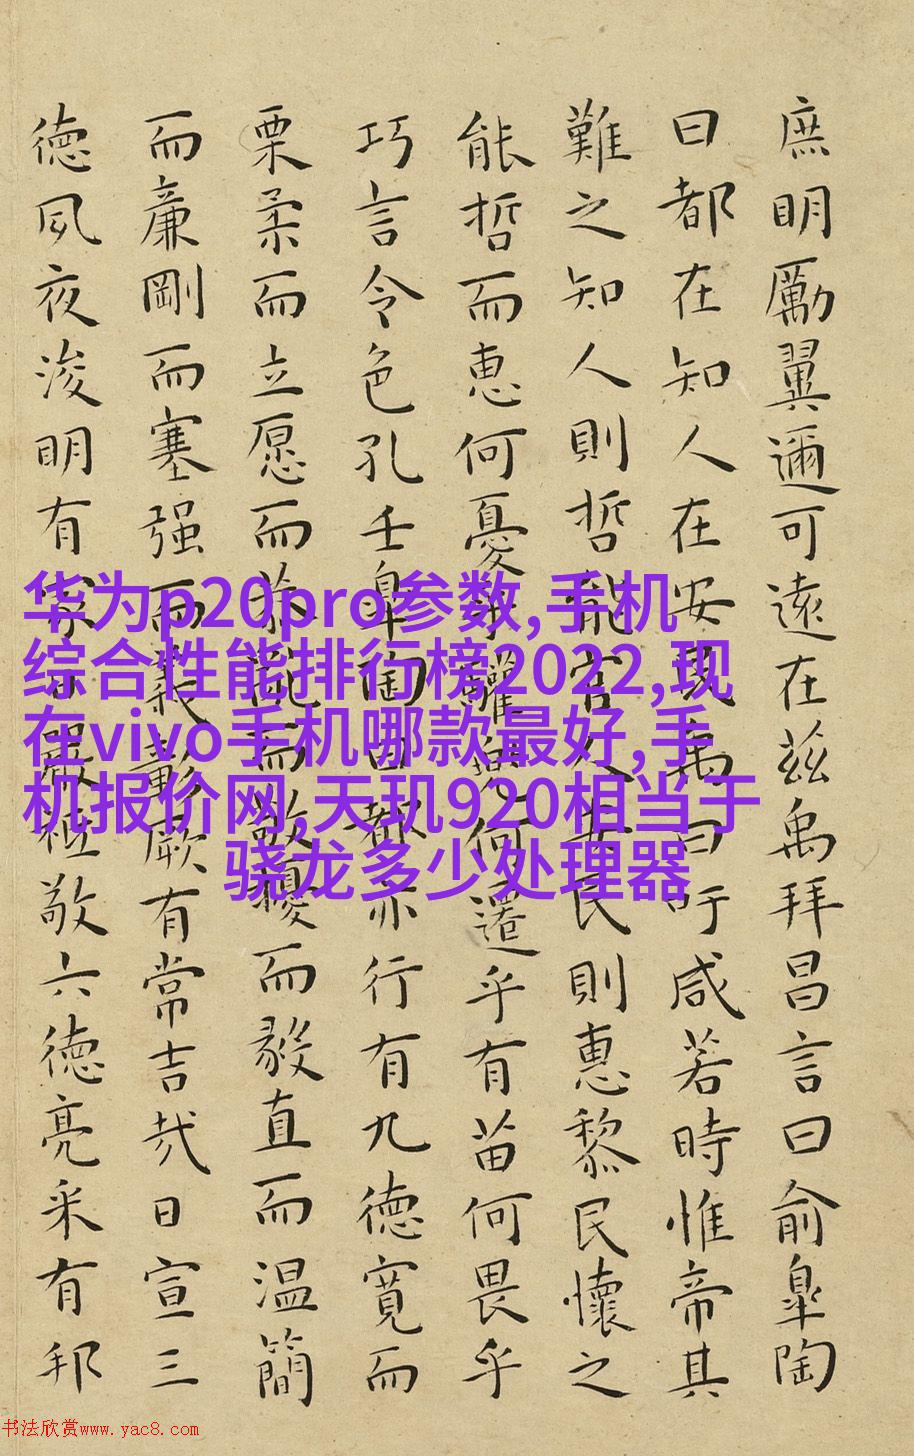 庶明勵翼邇可遠在茲禹拜昌言曰俞皐陶
曰都在知人在安民禹曰吁咸若時惟帝其
難之知人則哲能官人安民則惠黎民懷之
能哲而恵何憂乎驩兜何遷乎有苗何畏乎
巧言令色孔壬皐陶曰都亦行有九德寬而
栗柔而立愿而恭亂而敬擾而毅直而温簡
而廉剛而塞强而義彰厥有常吉哉日宣三
德夙夜浚明有家日嚴祗敬六德亮采有邦
华为p20pro参数,手机
综合性能排行榜2022,现
在vivo手机哪款最好,手
机报价网,天玑920相当于
骁龙多少处理器
书法欣赏www.yac8.com